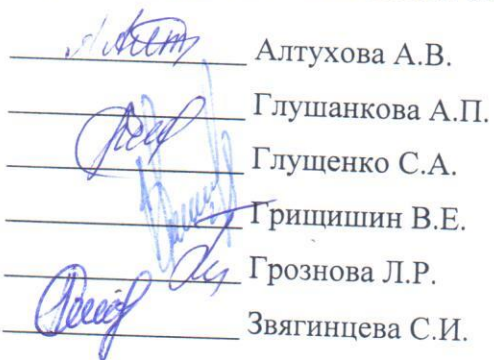 Алтухова А.В.
Глушанкова А.П.
Глущенко С.А.
Грищишин В.Е.
Грознова Л.Р.
Звягинцева С.И.